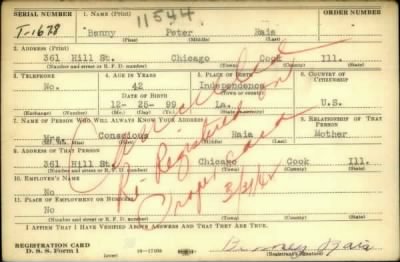 SERIAL NUMBER 1. NAME (Print) 11544 ORDER NUMBER
T-1678 Benny Peter Raia
(First) (Middle) (Last)
2. ADDRESS (Print)
361 Hill St. Chicago Cook Ill.
(Number and street or R. F. D. number) (Town) (County) (State)
3. TELEPHONE 4. AGE IN YEARS 5. PLACE OF BIRTH 6. COUNTRY OF CITIZENSHIP
No. 42 Independence
DATE OF BIRTH (Town or county)
12-25-99 La. U.S.
(Mo.) (Day) (Yr.) (State or country)
7. NAME OF PERSON WHO WILL ALWAYS KNOW YOUR ADDRESS 8. RELATIONSHIP OF THAT PERSON
Mrs. Conscious Raia Mother
(Mr., Mrs., Miss) (First) (Middle) (Last)
9. ADDRESS OF THAT PERSON
361 Hill St. Chicago Cook Ill.
(Number and street or R. F. D. number) (Town) (County) (State)
10. EMPLOYER'S NAME
No
11. PLACE OF EMPLOYMENT OR BUSINESS
No
(Number and street or R. F. D. number) (Town) (County) (State)
I AFFIRM THAT I HAVE VERIFIED ABOVE ANSWERS AND THAT THEY ARE TRUE.
REGISTRATION CARD
D. S. S. Form 1 (over) 16-17105 (Registrant's signature)
Cancelled
Re-Registered on
Proper Card
3/31/42
Raia